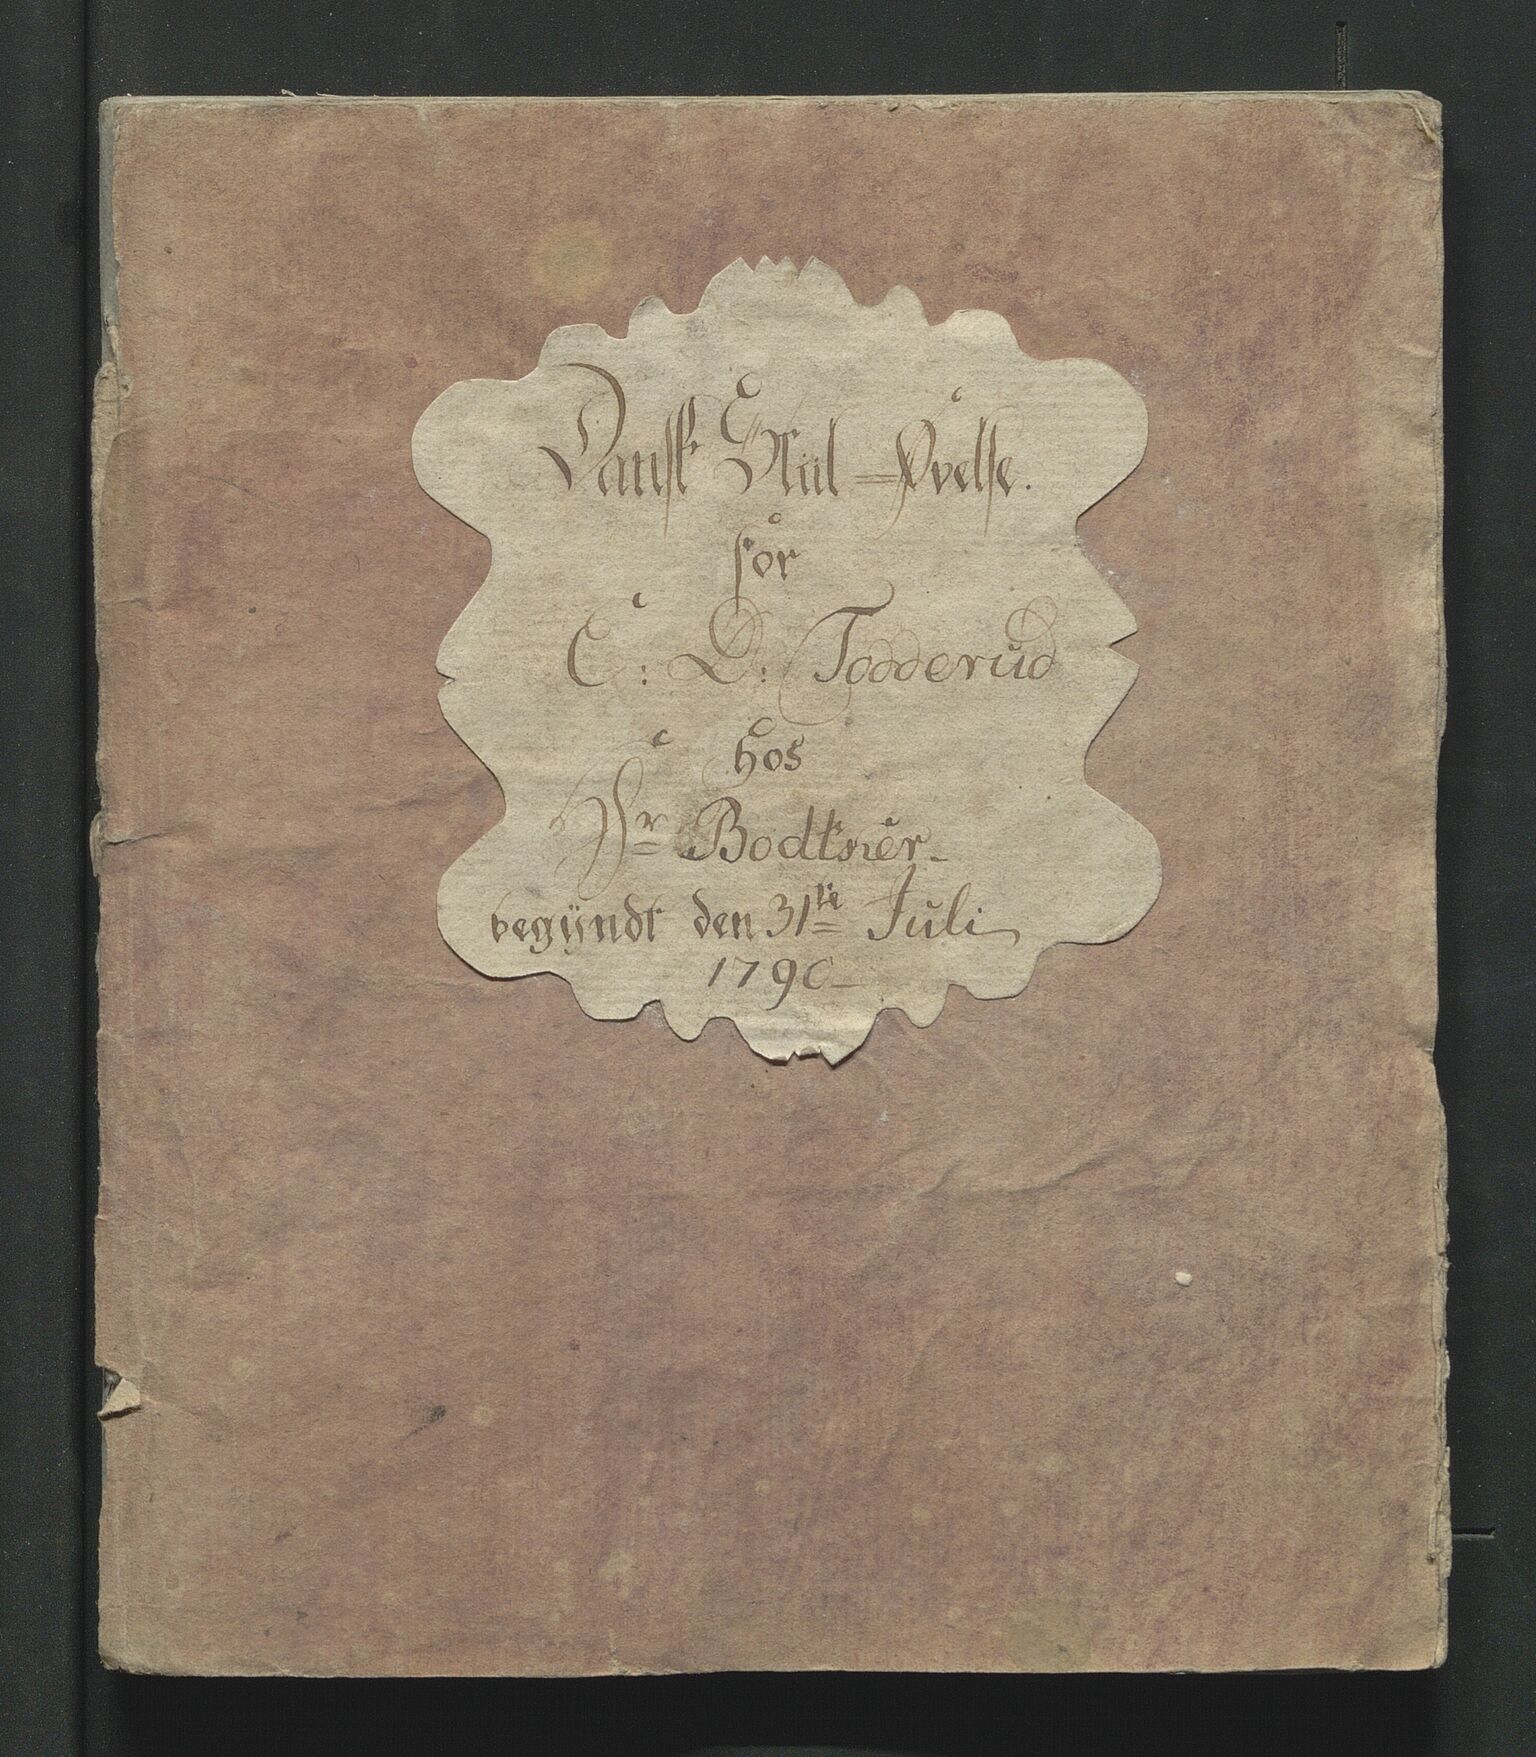 Dansk Stiil-Øvelse.
for
C: D: Todderud
hos
Hr Bodtker
begÿndt den 31te Juli
1790